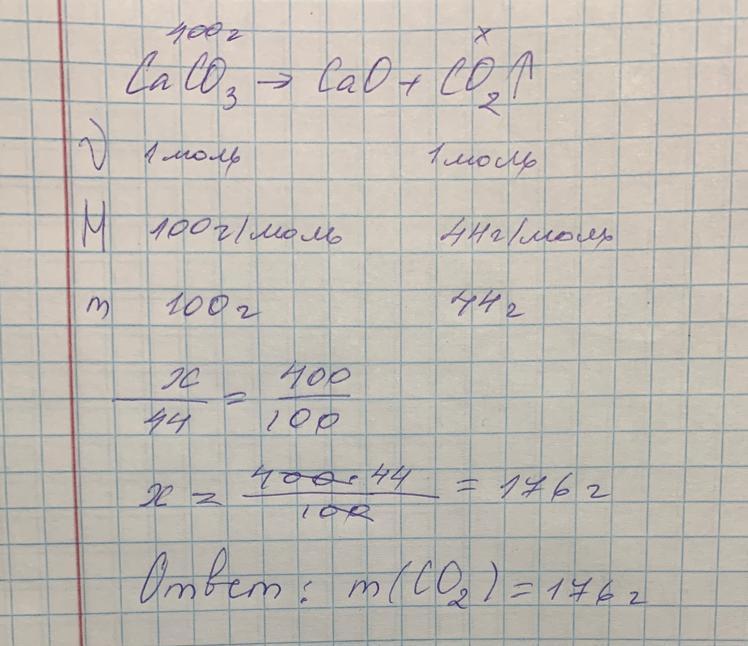 400г x
CaCO₃ → CaO + CO₂↑
ν 1 моль 1 моль
M 100г/моль 44г/моль
m 100г 44г
x/44 = 400/100
x = 400·44/100 = 176г
Ответ: m(CO₂) = 176г